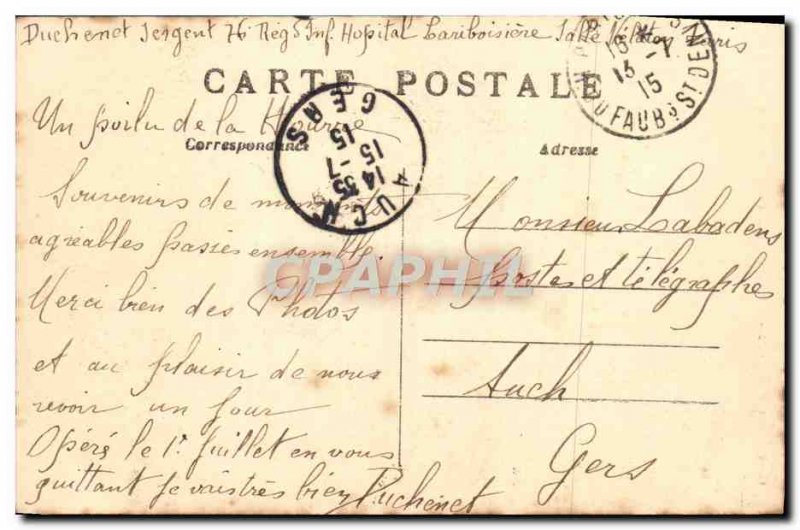 Duchenet Sergent 76 Rég Inf. Hopital Lariboisière Salle Nélaton Paris
CARTE POSTALE
Un poilu de la
Correspondance
Adresse
Souvenirs de moments
agréables passés ensemble.
Merci bien des Photos
et au plaisir de nous
revoir un jour
Opéré le 1r Juillet en vous
quittant je vais très bien Duchenet
Monsieur Labadens
postes et télégraphes
Auch
Gers
AUCH
GERS
14 35
15 -7
15
13 -7
15
DU FAUBG ST DENIS
CPAPHIL